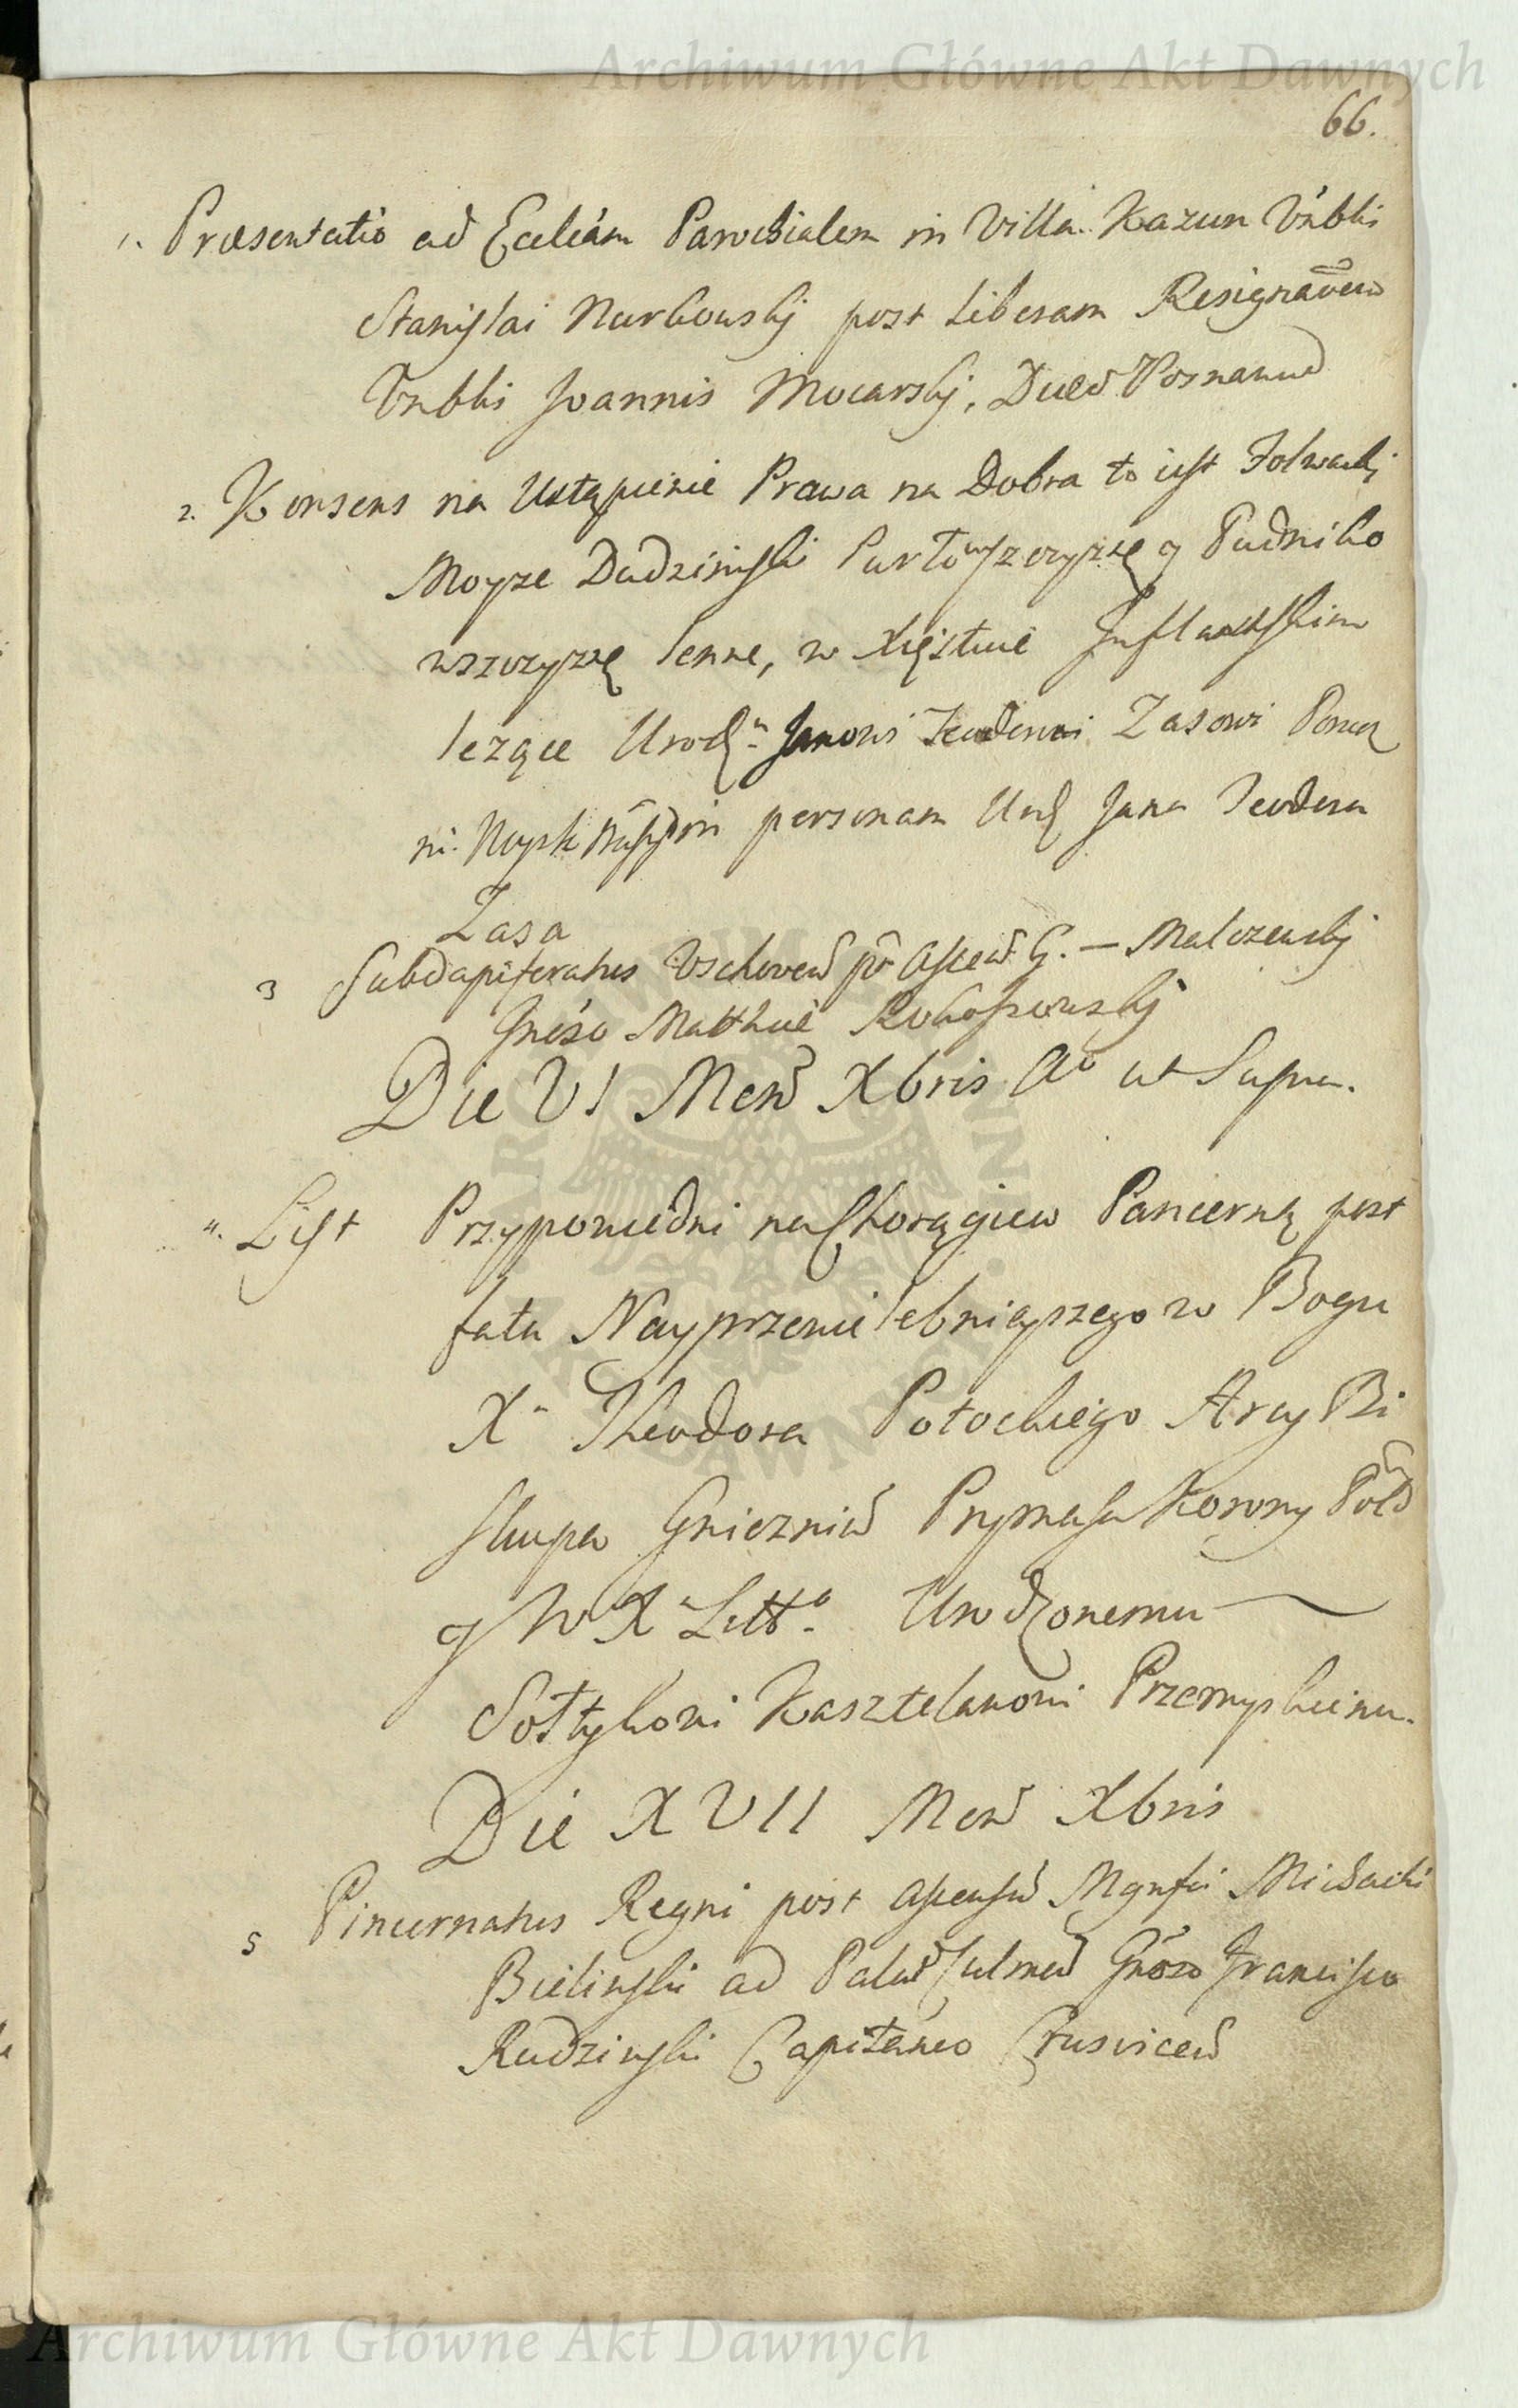 Archiwum Główne Akt Dawnych
66.
1. Præsentatio ad Eccliam Parochialem in Villa Kazun Vnbbli
Stanislai Narbowskj post Liberam Resignaōem
Vnbbli Joannis Mocarskj, Duev Posnanien
2. Konsens na Ustąpienie Prawa na Dobra to iest Folwarki
Moyze Dudzinski y Pudniko
wszczyznę lenne, w Xięstwie Inflantskim
leżące Urodz. Janowi Teodorowi Zasowi
personam Urodz Jana Teodora
Zasa
3 Subdapiferatus Vschoven post Ascen G. — Malczewskj
Gnoso Matthiæ Rokossowskj
Die VI Men Xbris Ao ut Supra.
4. List Przypowiedni na Chorągiew Pancerną post
fata Nayprzewielebnieyszego w Bogu
Xa Theodora Potockiego Arcy Bi
skupa Gniezni Prymasa Korony Pol
y W X Litto. Urodzonemu
Sołtykowi Kasztelanowi Przemyskiemu.
Die XVII Men Xbris
5 Pincernatus Regni post Ascensu Mgnfci Michaelis
Bielinski ad Palat Culmen Gnoso Francisco
Rudzinski Capitaneo Crusvicen
Archiwum Główne Akt Dawnych